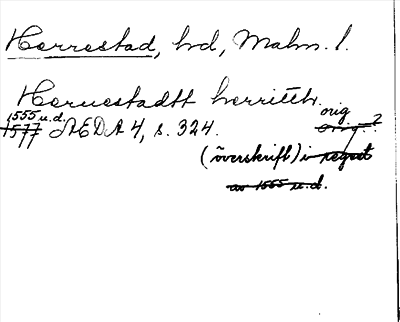 Herrestad, hd, Malm. l.
Heruestadtt herritth.
1555 u.d. orig
1577 ÆDA 4, s. 324. orig. ?
(överskrift) i regest
av 1555 u.d.